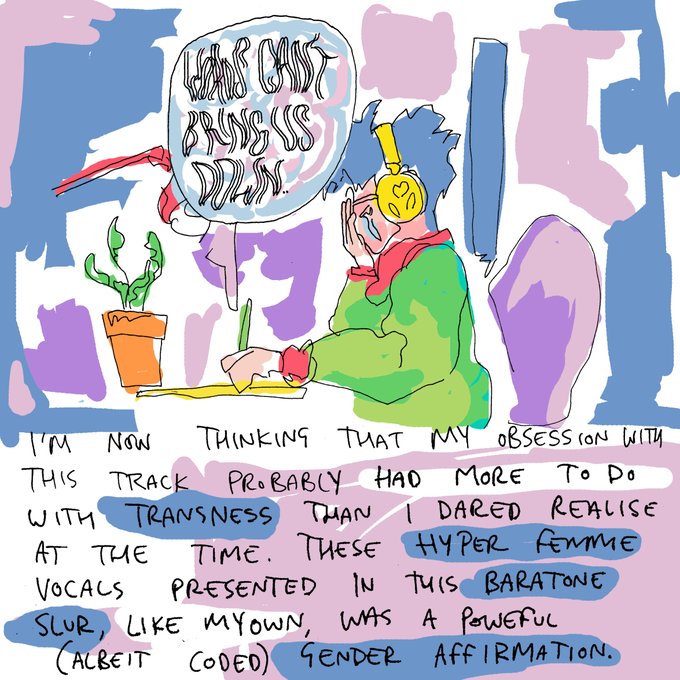 WORDS CAN'T
BRING US
DOWN..
I'M NOW THINKING THAT MY OBSESSION WITH
THIS TRACK PROBABLY HAD MORE TO DO
WITH TRANSNESS THAN I DARED REALISE
AT THE TIME. THESE HYPER FEMME
VOCALS PRESENTED IN THIS BARATONE
SLUR, LIKE MY OWN, WAS A POWEFUL
(ALBEIT CODED) GENDER AFFIRMATION.